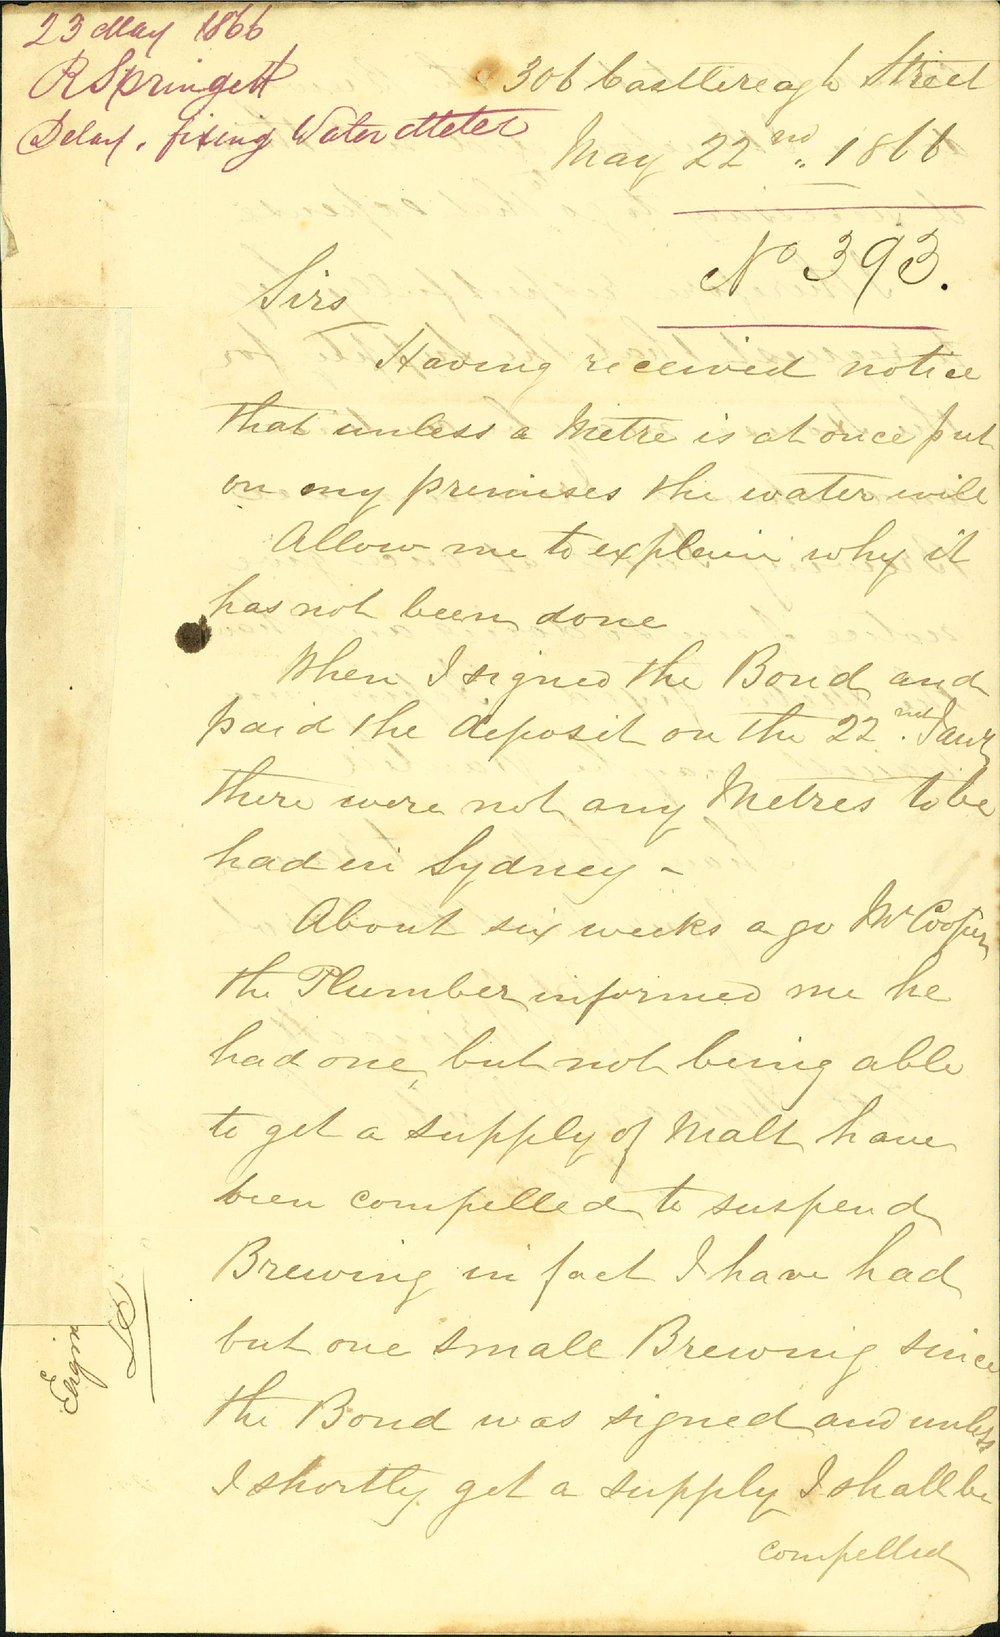 23 May 1866
R Springett
Delay. fixing Water Meter
306 Castlereagh Street
May 22nd. 1866
No 393.
Sirs
Having received notice
that unless a Metre is at once put
on my premises the water will
Allow me to explain why it
has not been done
When I signed the Bond and
paid the deposit on the 22nd. Jany
there were not any Metres to be
had in Sydney -
About six weeks ago Mr Cooper
the Plumber informed me he
had one, but not being able
to get a supply of Malt have
been compelled to suspend
Brewing in fact I have had
but one small Brewing since
the Bond was signed and unless
I shortly get a supply I shall be
compelled
Engin